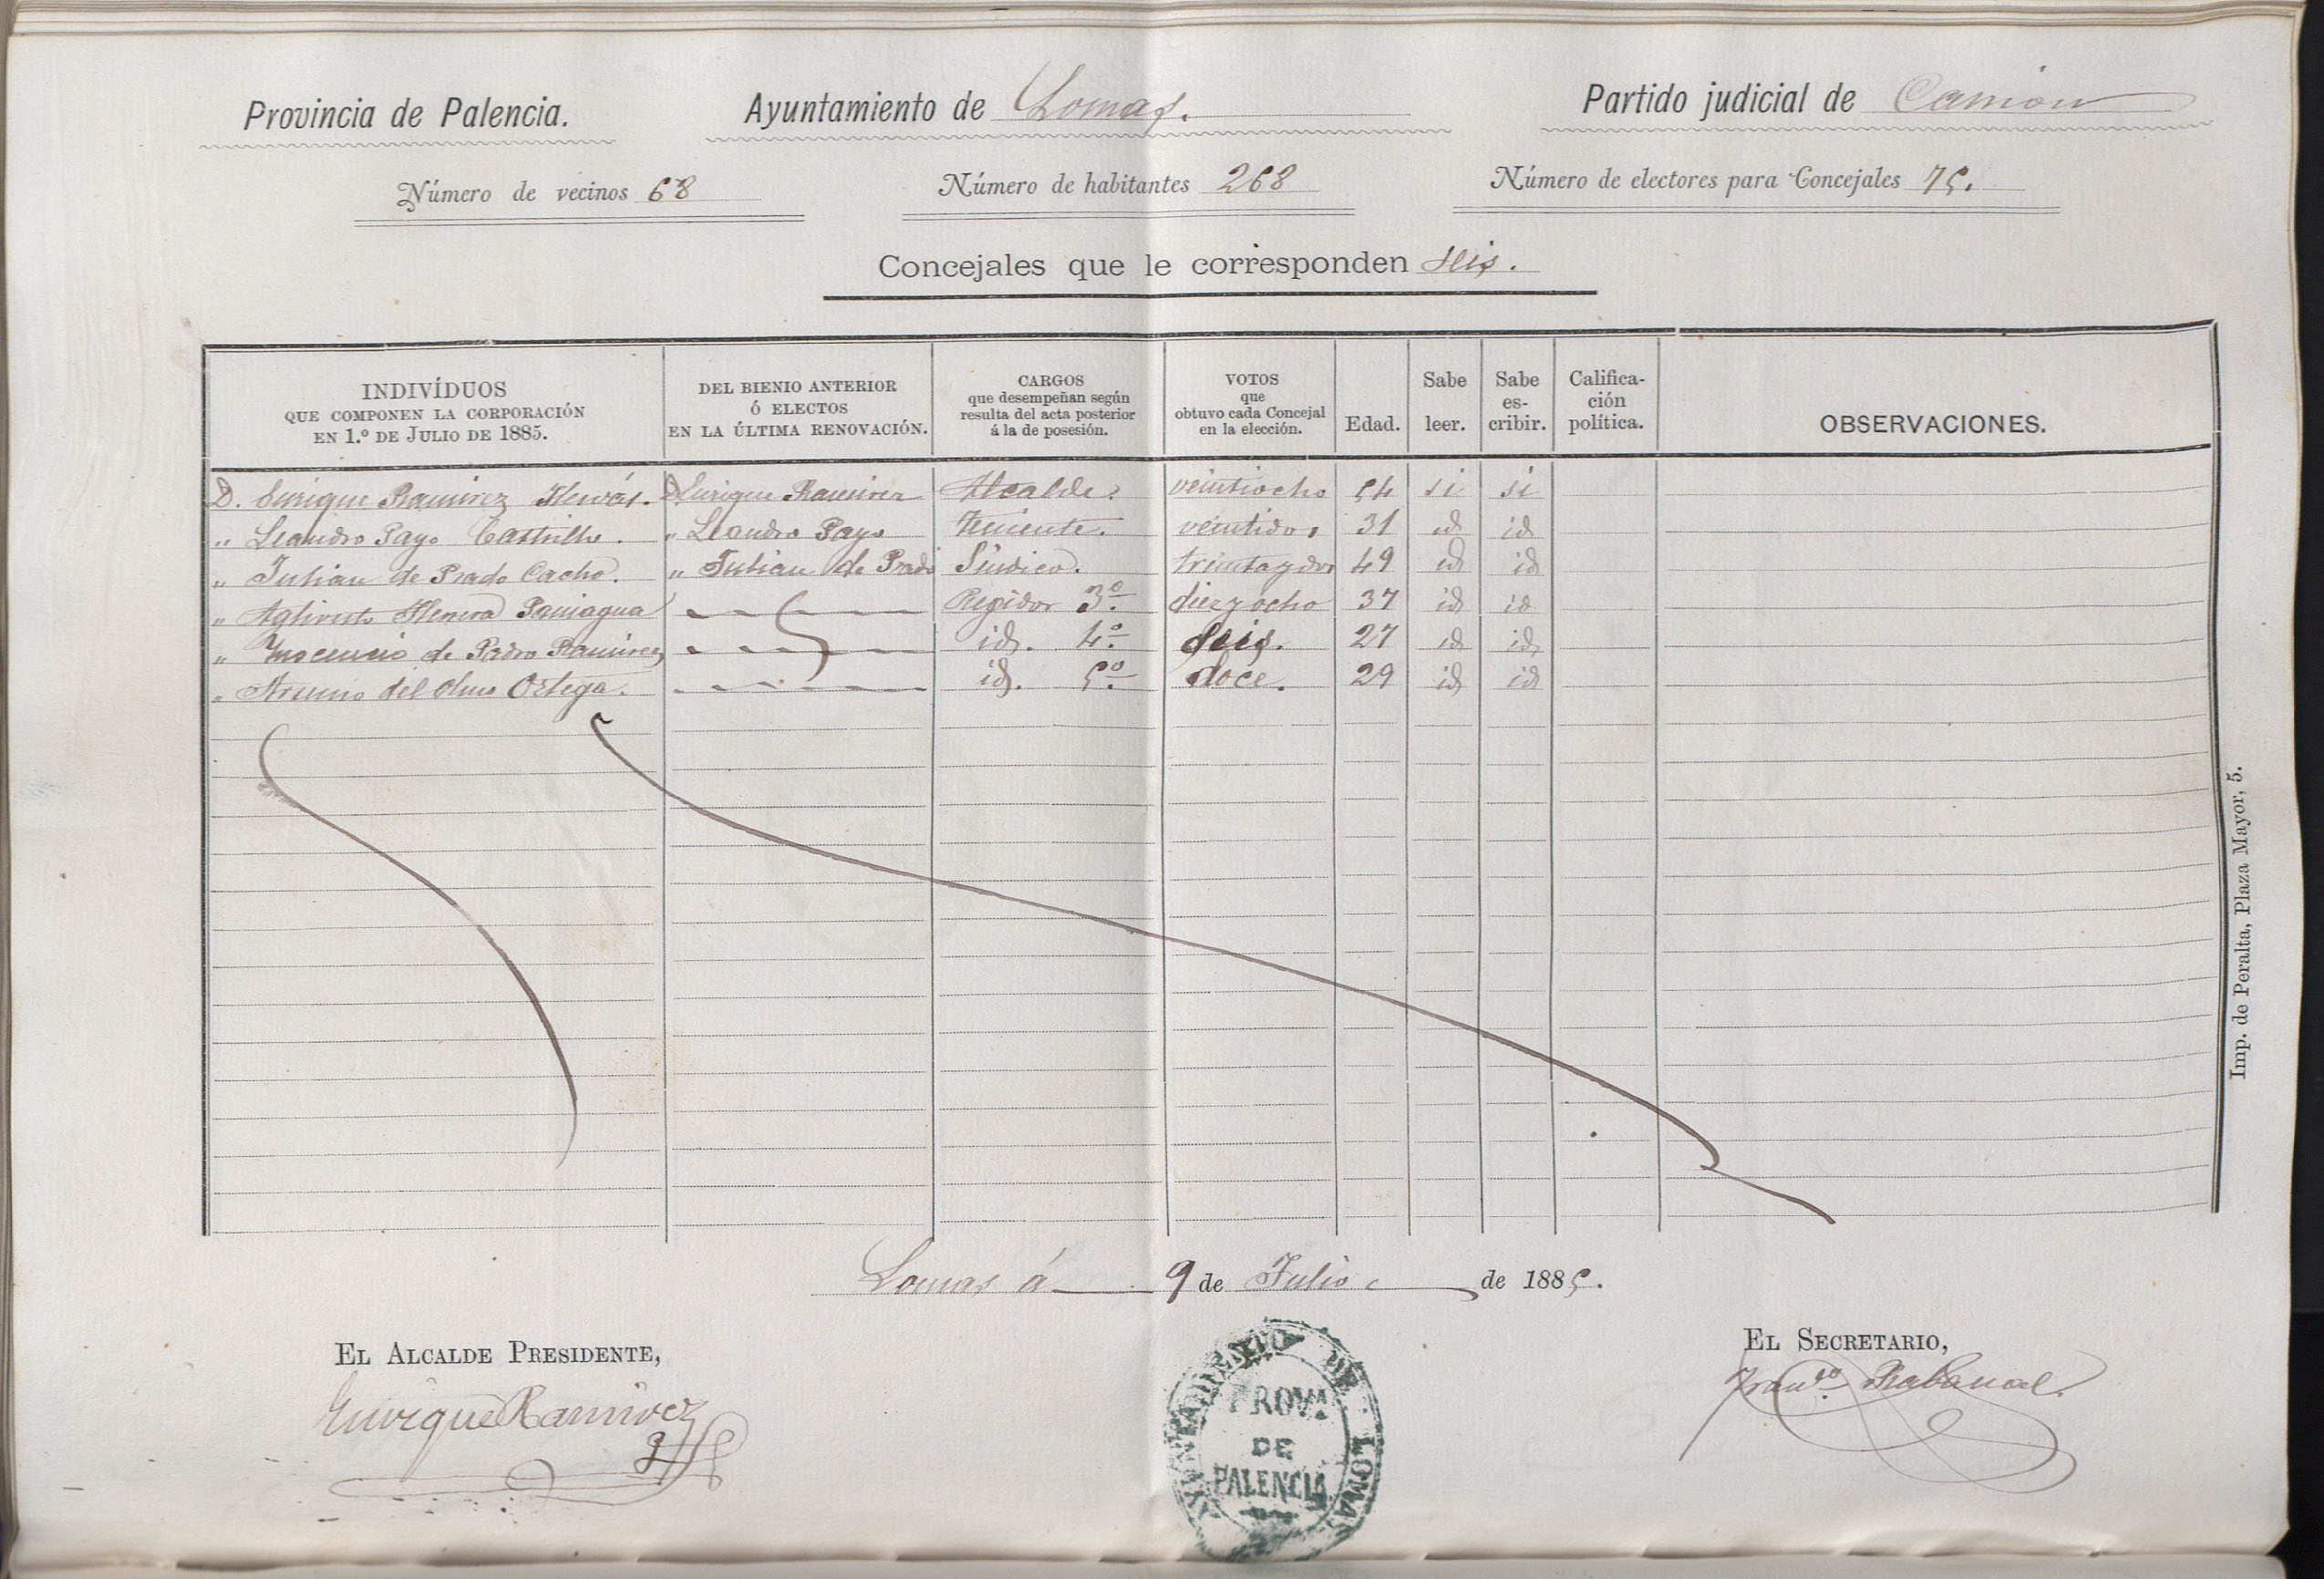 Provincia de Palencia. Ayuntamiento de Lomas. Partido judicial de Carrión
Número de vecinos 68 Número de habitantes 268 Número de electores para Concejales 75.
Concejales que le corresponden seis.
INDIVÍDUOS QUE COMPONEN LA CORPORACIÓN EN 1.º DE JULIO DE 1885. DEL BIENIO ANTERIOR Ó ELECTOS EN LA ÚLTIMA RENOVACIÓN. CARGOS que desempeñan según resulta del acta posterior á la de posesión. VOTOS que obtuvo cada Concejal en la elección. Edad. Sabe leer. Sabe es-cribir. Califica-ción política. OBSERVACIONES.
D. Enrique Ramirez Hervás. D. Enrique Ramirez Alcalde. veintiocho 54 si si
" Leandro Payo Castrillo. " Leandro Payo Teniente. veintidos 31 id id
" Julian de Prado Cacho. " Julian de Prado Síndico. treinta y dos 49 id id
" Herrera Paniagua Regidor 3º. diez y ocho 37 id id
" Inocencio de Ramirez id. 4º. seis. 27 id id
" del Olmo Ortega. id. 5º. doce. 29 id id
Imp. de Peralta, Plaza Mayor, 5.
Lomas á 9 de Julio de 1885.
EL ALCALDE PRESIDENTE, EL SECRETARIO,
Enrique Ramirez Franco. Rabanal.
AYUNTAMIENTO DE LOMAS
PROVA.
DE
PALENCIA